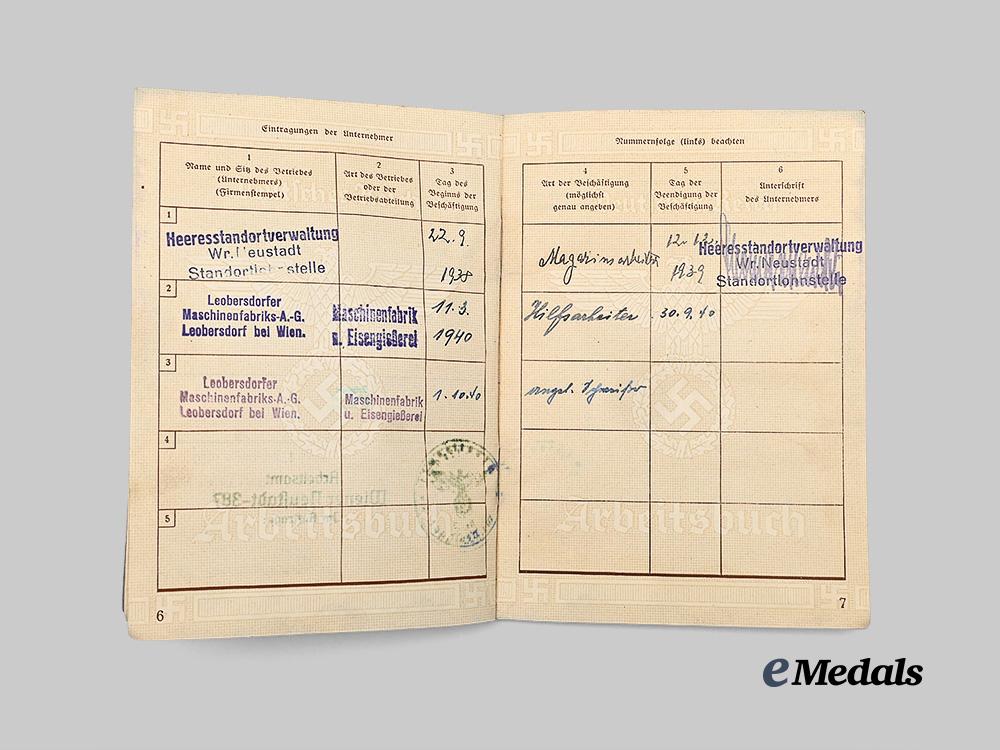 Eintragungen der Unternehmer
1
Name und Sitz des Betriebes
(Unternehmers)
(Firmenstempel)
2
Art des Betriebes
oder der
Betriebsabteilung
3
Tag des
Beginns der
Beschäftigung
1
Heeresstandortverwaltung
Wr. Neustadt
Standortlohnstelle
22. 9.
1938
2
Leobersdorfer
Maschinenfabriks-A.-G.
Leobersdorf bei Wien.
Maschinenfabrik
u. Eisengießerei
11. 3.
1940
3
Leobersdorfer
Maschinenfabriks-A.-G.
Leobersdorf bei Wien.
Maschinenfabrik
u. Eisengießerei
1. 10. 40
4
Arbeitsamt
Wiener Neustadt-387
5
Arbeitsbuch
6
Nummernfolge (links) beachten
4
Art der Beschäftigung
(möglichst
genau angeben)
5
Tag der
Beendigung der
Beschäftigung
6
Unterschrift
des Unternehmers
Magazinsarbeiter
12. 12.
1939
Heeresstandortverwaltung
Wr. Neustadt
Standortlohnstelle
Hilfsarbeiter
30. 9. 40
angel.
Arbeitsbuch
7
eMedals